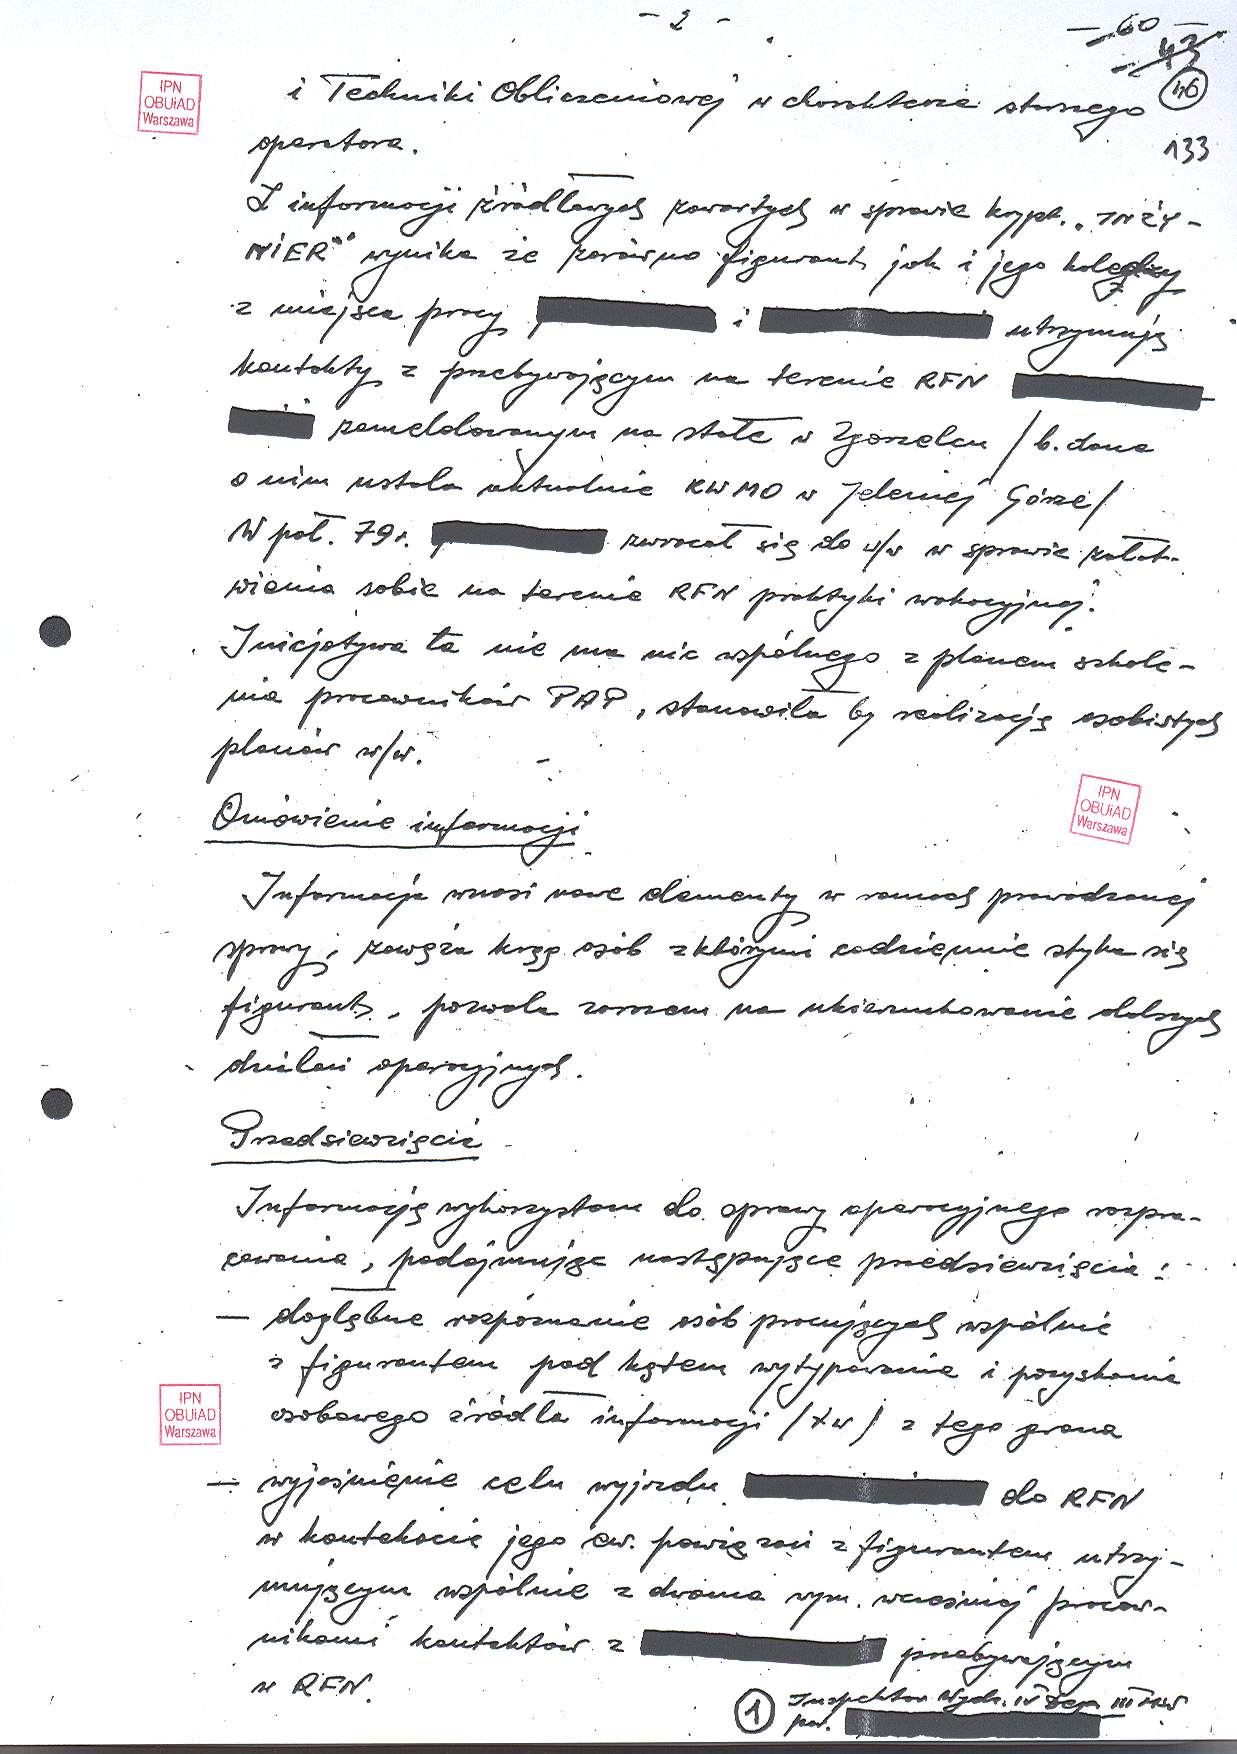 - 2 -
- 60 -
- 43
46
133
IPN
OBUiAD
Warszawa
i Techniki Obliczeniowej w charakterze starszego
operatora.
Z informacji źródłowych zawartych w sprawie krypt. "INŻY-
NIER" wynika że zarówno figurant jak i jego koledzy
z miejsca pracy i utrzymują
kontakty z przebywającym na terenie RFN
zameldowanym na stałe w Zgorzelcu /b. dane
o nim ustala aktualnie KWMO w Jeleniej Górze/
W poł. 79r. zwracał się do w/w w sprawie załat-
wienia sobie na terenie RFN praktyki wakacyjnej.
Inicjatywa ta nie ma nic wspólnego z planem szkole-
nia pracowników PAP, stanowiła by realizację osobistych
planów w/w.
IPN
OBUiAD
Warszawa
Omówienie informacji
Informacja wnosi nowe elementy w ramach prowadzonej
sprawy, zawęża krąg osób z którymi codziennie styka się
figurant, pozwala zarazem na ukierunkowanie dalszych
działań operacyjnych.
Przedsięwzięcia
Informację wykorzystam do sprawy operacyjnego rozpra-
cowania, podejmując następujące przedsięwzięcia:
- dogłębne rozpoznanie osób pracujących wspólnie
z figurantem pod kątem wytypowania i pozyskania
osobowego źródła informacji /tw/ z tego grona
IPN
OBUiAD
Warszawa
- wyjaśnienie celu wyjazdu do RFN
w kontekście jego ew. powiązań z figurantem utrzy-
mującym wspólnie z dwoma wym. wcześniej pracow-
nikami kontaktów z przebywającym
w RFN.
1 Inspektor Wydz. IV Dep III MSW
por.